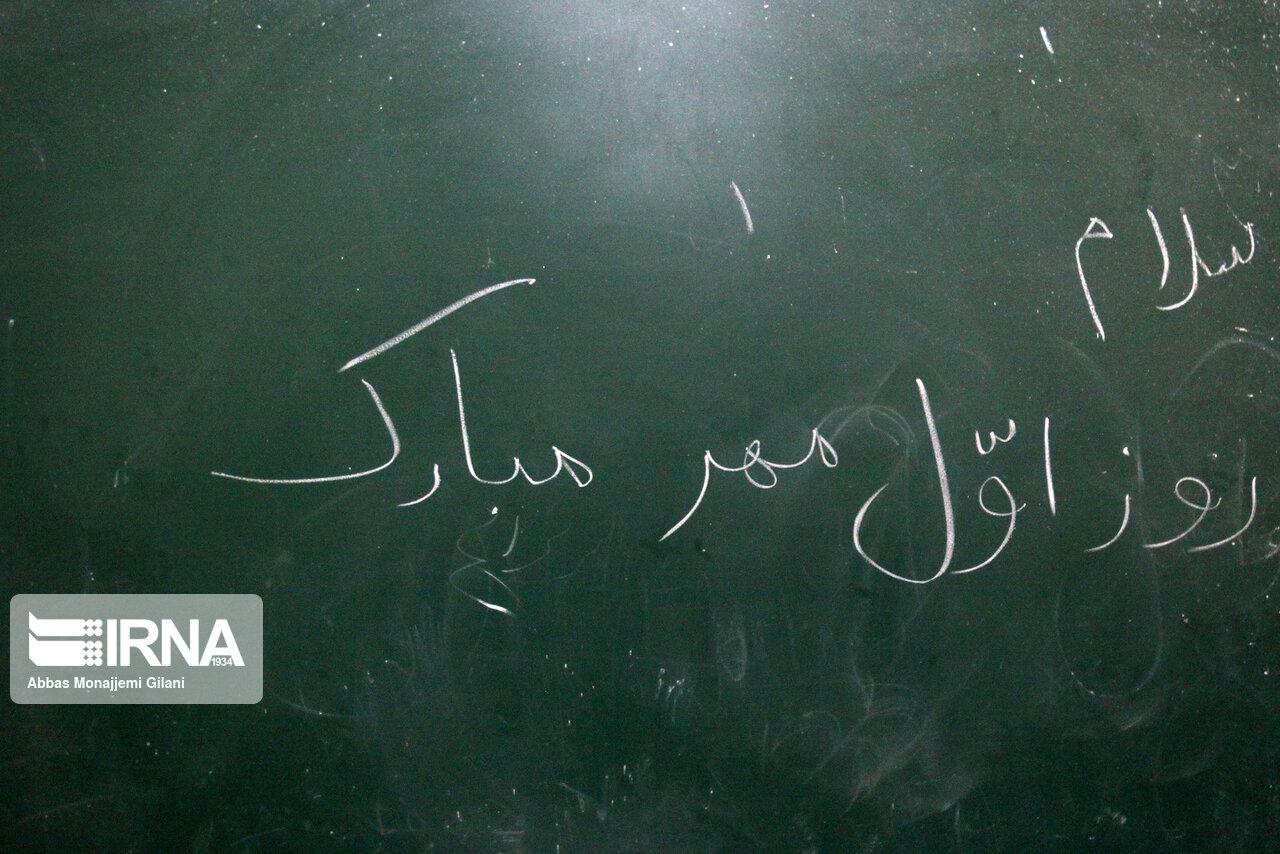 سلام
روز اوّل مهر مبارک
IRNA
1934
Abbas Monajjemi Gilani